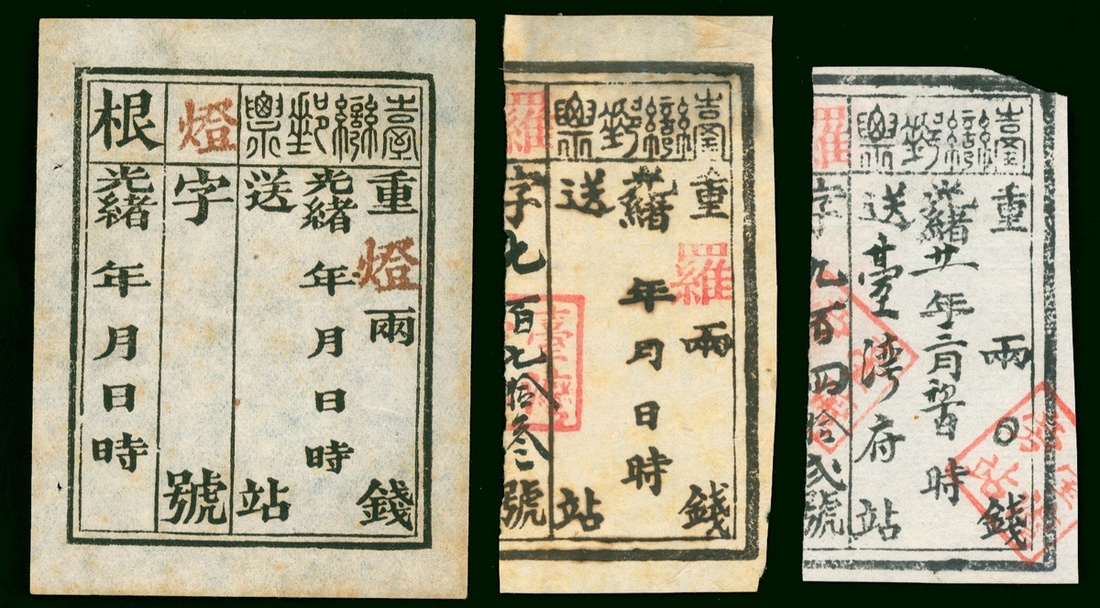 臺灣郵票
重燈兩錢
光緒年月日時
送站
燈字號
根
光緒年月日時
臺灣郵票
重羅兩錢
光緒年月日時
送站
羅字九百九拾叁號
臺灣郵票
重兩0錢
光緒廿一年二月時
送臺湾府站
羅字九百四拾貳號